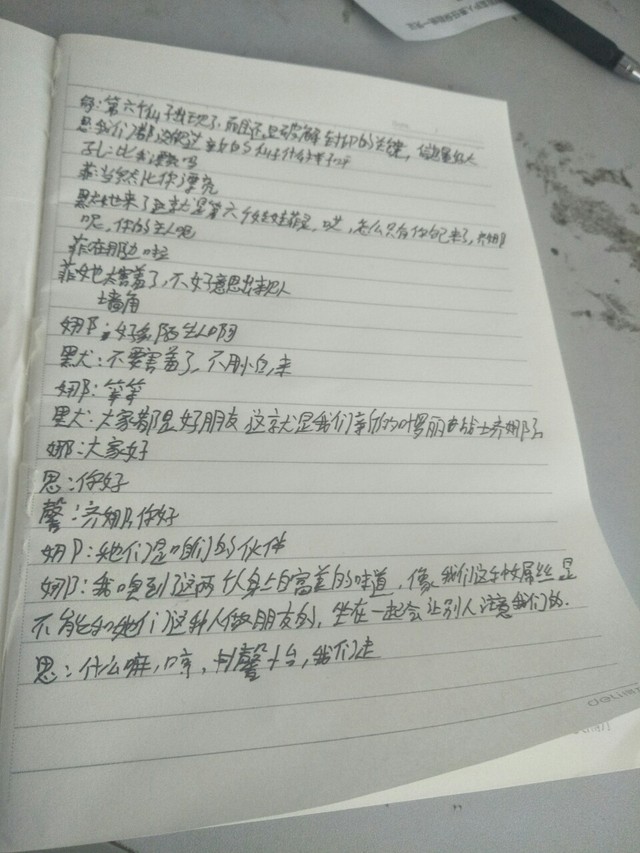 第六个仙子出现了,而且还是破解封印的关键,
思:我们都没见过新的仙子什么样子呀
孔:比我漂亮吗
菲:当然比你漂亮
黑:她来了这就是第六个娃娃菲灵,哎,怎么只有你自己来了,齐娜
呢,你的主人呢
菲:在那边啦
菲:她太害羞了,不好意思出来见人
墙角
娜:好多陌生人啊
黑犬:不要害羞了,不用怕,来
娜:等等
黑犬:大家都是好朋友 这就是我们新的叶罗丽战士齐娜
娜:大家好
思:你好
馨:齐娜你好
娜:她们是咱们的伙伴
娜:我嗅到了这两个人身上白富美的味道,像我们这种女屌丝是
不能和她们这种人做朋友的,坐在一起会让别人注意我们的.
思:什么嘛,哼,馨,我们走
deli